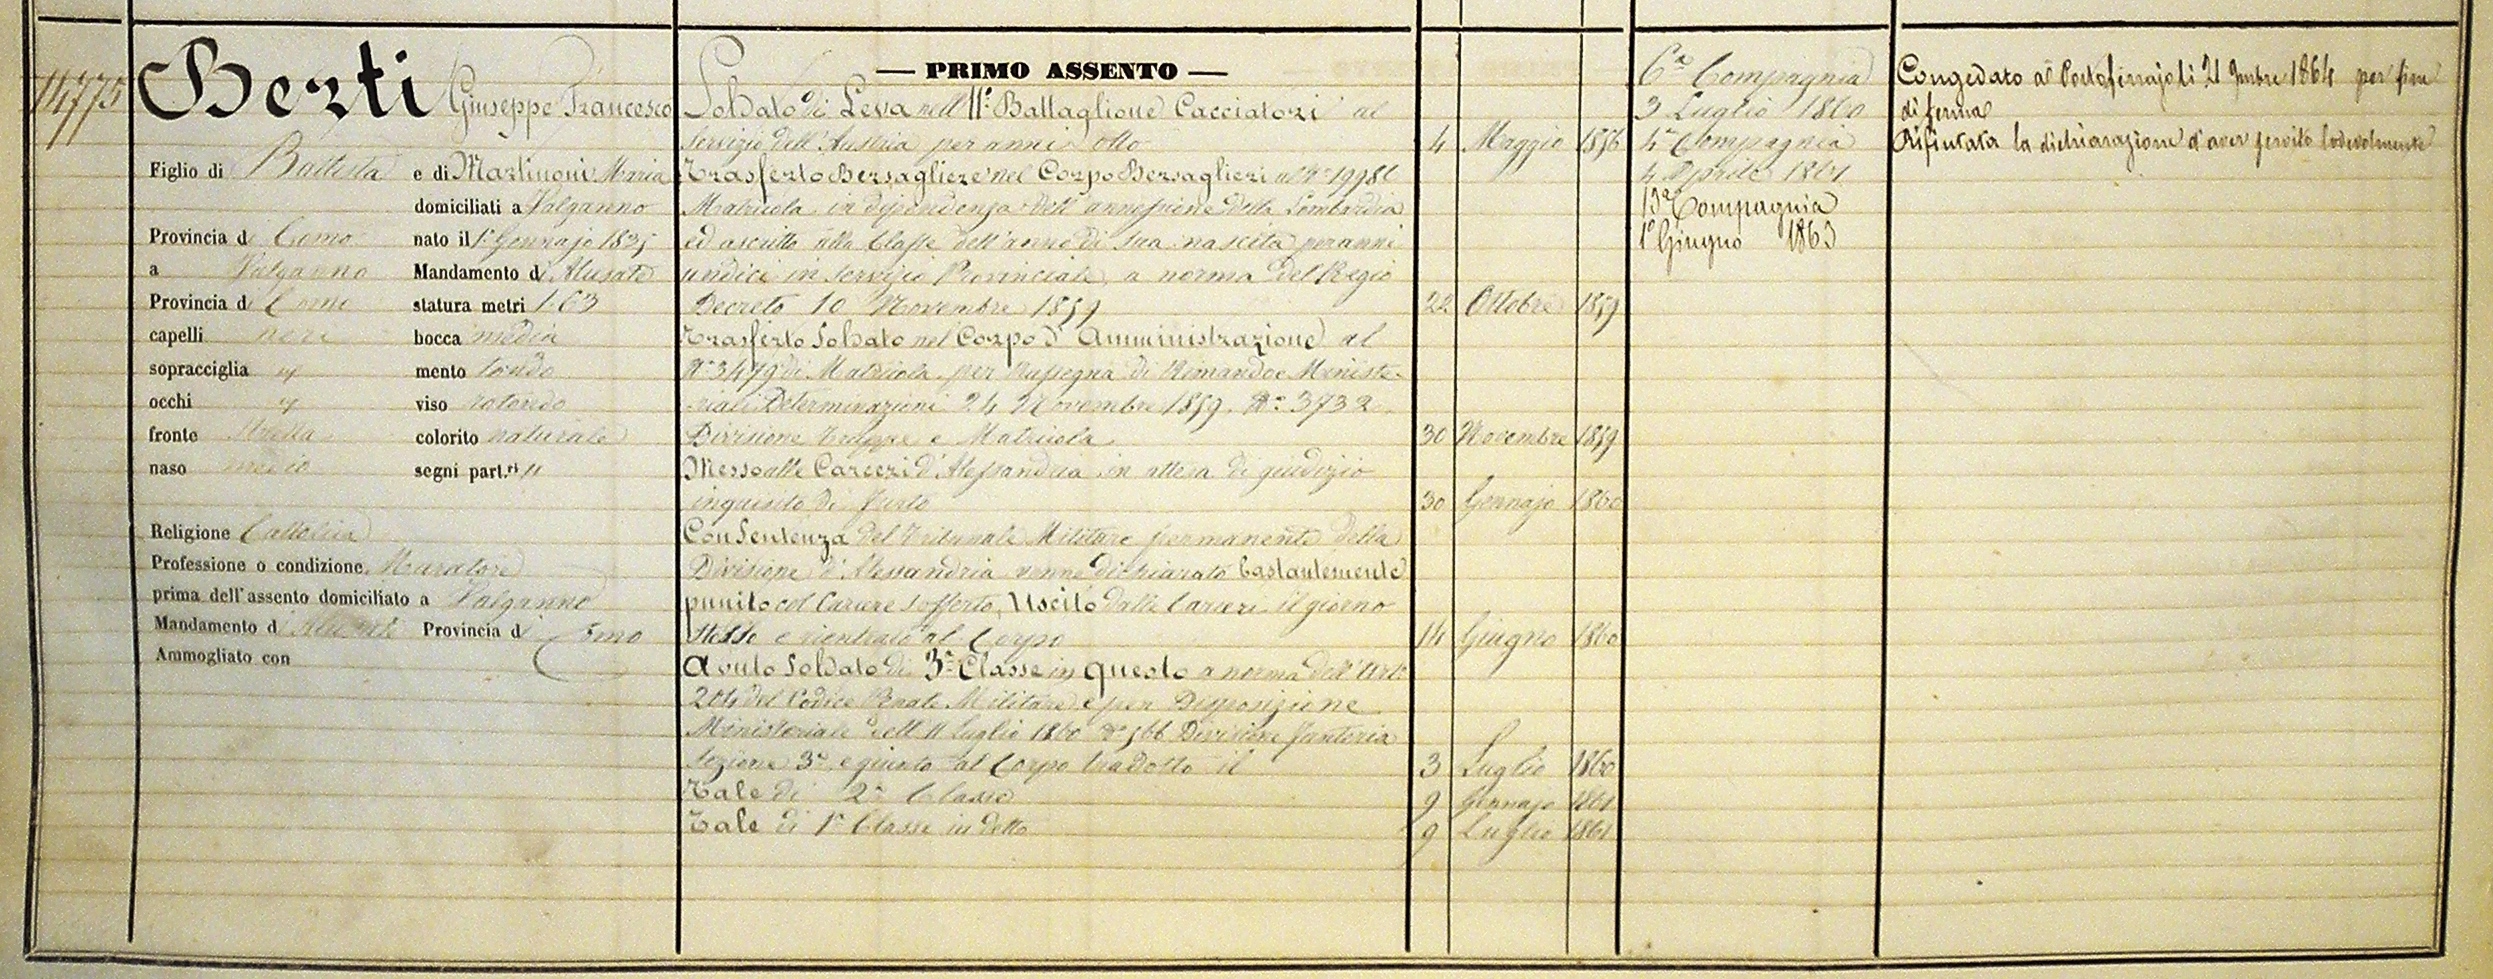 14775
Berti Giuseppe Francesco
Figlio di Battista e di Martinoni Maria
domiciliati a Valganno
Provincia di Como nato il 1° Gennajo 1835
a Valganno Mandamento di
Provincia di Como statura metri 1.63
capelli neri bocca media
sopracciglia " mento tondo
occhi " viso rotondo
fronte colorito naturale
naso medio segni part.ri "
Religione Cattolica
Professione o condizione Muratore
prima dell'assento domiciliato a Valganno
Mandamento di Provincia di Como
Ammogliato con
— PRIMO ASSENTO —
Soldato di Leva nell'11° Battaglione Cacciatori al
servizio dell'Austria per anni otto 4 Maggio 1856
Trasferto Bersagliere nel Corpo Bersaglieri al N°
Matricola in dipendenza dell'annessione della Lombardia
ed ascritto alla Classe dell'anno di sua nascita per anni
undici in servizio Provinciale, a norma del Regio
Decreto 10 Novembre 1859 22 Ottobre 1859
Trasferto Soldato nel Corpo d'Amministrazione al
N° 3479 di Matricola per Rassegna di Rimando e Ministe-
riali Determinazioni 24 Novembre 1859 N° 3732
Divisione Truppe e Matricola 30 Novembre 1859
Messo alle Carceri d'Alessandria in attesa di giudizio
inquisito di furto 30 Gennajo 1860
Con Sentenza del Tribunale Militare permanente della
Divisione d'Alessandria venne dichiarato bastantemente
punito col Carcere sofferto, Uscito dalle Carceri il giorno
stesso e rientrato al Corpo 14 Giugno 1860
Avuto Soldato di 3ª Classe in questo a norma dell'Art°
204 del Codice Penale Militare e per Disposizione
Ministeriale dell'11 Luglio 1860 N° 566 Divisione Fanteria
Sezione 3ª, e giunto al Corpo tradotto il 3 Luglio 1860
Tale di 2ª Classe 9 Gennajo 1861
Tale di 1ª Classe in detto 9 Luglio 1861
6ª Compagnia
3 Luglio 1860
4ª Compagnia
4 Aprile 1861
13ª Compagnia
1° Giugno 1863
Congedato a Portoferrajo li 21 1864 per fine
di ferma
Rifiutata la dichiarazione d'aver servito lodevolmente